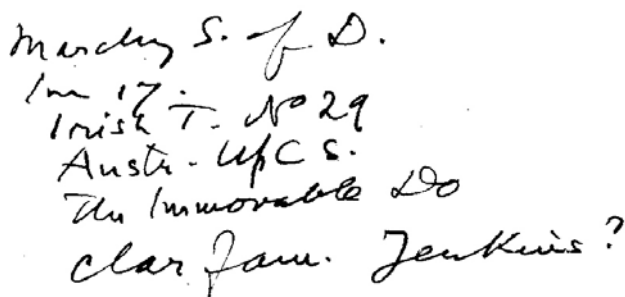 Marchg S. of D.
17.
Irish T. No 29
Austr. Up C S.
The Immovable Do
clar fam. Jenkins?